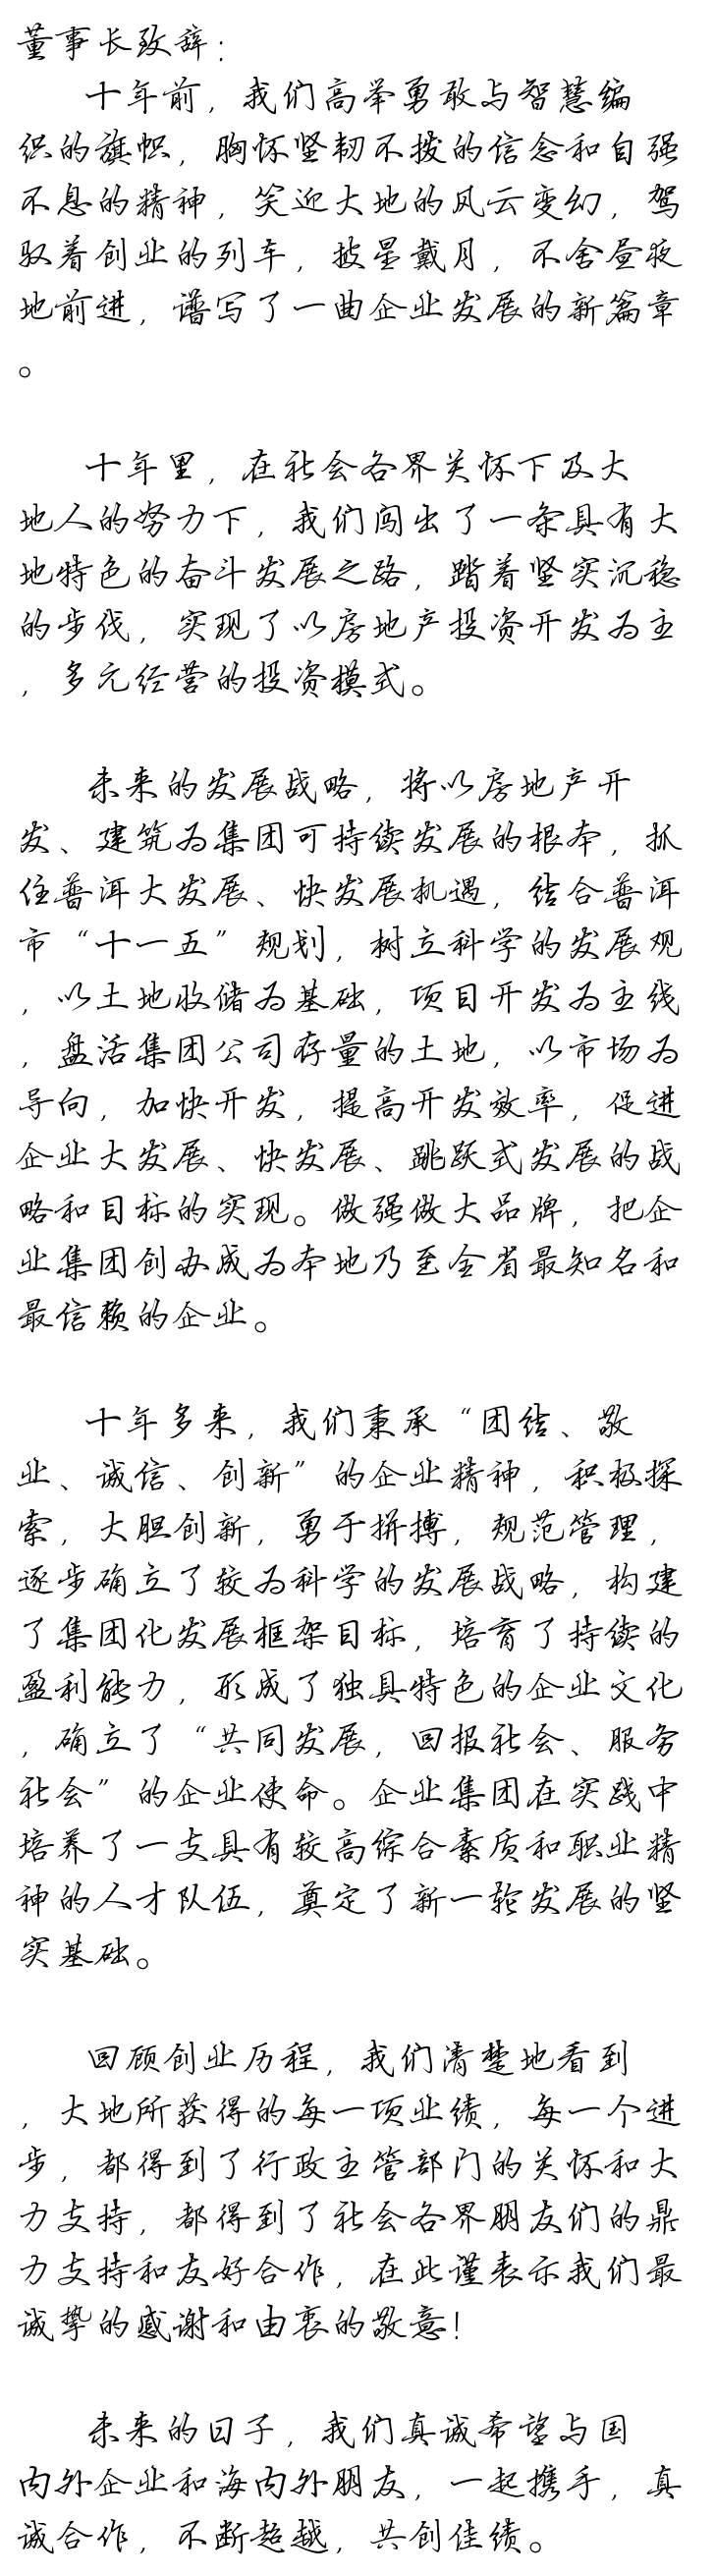 董事长致辞：
十年前，我们高举勇敢与智慧编
织的旗帜，胸怀坚韧不拨的信念和自强
不息的精神，笑迎大地的风云变幻，驾
驭着创业的列车，披星戴月，不舍昼夜
地前进，谱写了一曲企业发展的新篇章
。
十年里，在社会各界关怀下及大
地人的努力下，我们闯出了一条具有大
地特色的奋斗发展之路，踏着坚实沉稳
的步伐，实现了以房地产投资开发为主
，多元经营的投资模式。
未来的发展战略，将以房地产开
发、建筑为集团可持续发展的根本，抓
住普洱大发展、快发展机遇，结合普洱
市“十一五”规划，树立科学的发展观
，以土地收储为基础，项目开发为主线
，盘活集团公司存量的土地，以市场为
导向，加快开发，提高开发效率，促进
企业大发展、快发展、跳跃式发展的战
略和目标的实现。做强做大品牌，把企
业集团创办成为本地乃至全省最知名和
最信赖的企业。
十年多来，我们秉承“团结、敬
业、诚信、创新”的企业精神，积极探
索，大胆创新，勇于拼搏，规范管理，
逐步确立了较为科学的发展战略，构建
了集团化发展框架目标，培育了持续的
盈利能力，形成了独具特色的企业文化
，确立了“共同发展，回报社会、服务
社会”的企业使命。企业集团在实践中
培养了一支具有较高综合素质和职业精
神的人才队伍，奠定了新一轮发展的坚
实基础。
回顾创业历程，我们清楚地看到
，大地所获得的每一项业绩，每一个进
步，都得到了行政主管部门的关怀和大
力支持，都得到了社会各界朋友们的鼎
力支持和友好合作，在此谨表示我们最
诚挚的感谢和由衷的敬意！
未来的日子，我们真诚希望与国
内外企业和海内外朋友，一起携手，真
诚合作，不断超越，共创佳绩。